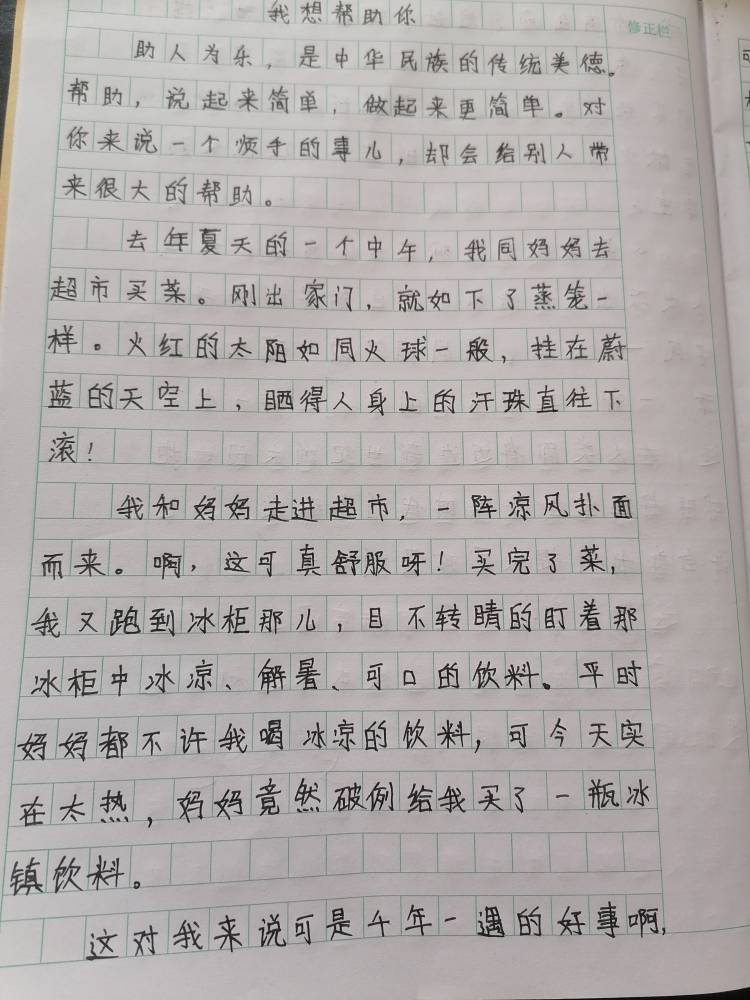 我想帮助你
修正栏
助人为乐，是中华民族的传统美德。
帮助，说起来简单，做起来更简单。对
你来说一个烦手的事儿，却会给别人带
来很大的帮助。
去年夏天的一个中午，我同妈妈去
超市买菜。刚出家门，就如下了蒸笼一
样。火红的太阳如同火球一般，挂在蔚
蓝的天空上，晒得人身上的汗珠直往下
滚！
我和妈妈走进超市，一阵凉风扑面
而来。啊，这可真舒服呀！买完了菜，
我又跑到冰柜那儿，目不转睛的盯着那
冰柜中冰凉、解暑、可口的饮料。平时
妈妈都不许我喝冰凉的饮料，可今天实
在太热，妈妈竟然破例给我买了一瓶冰
镇饮料。
这对我来说可是千年一遇的好事啊，